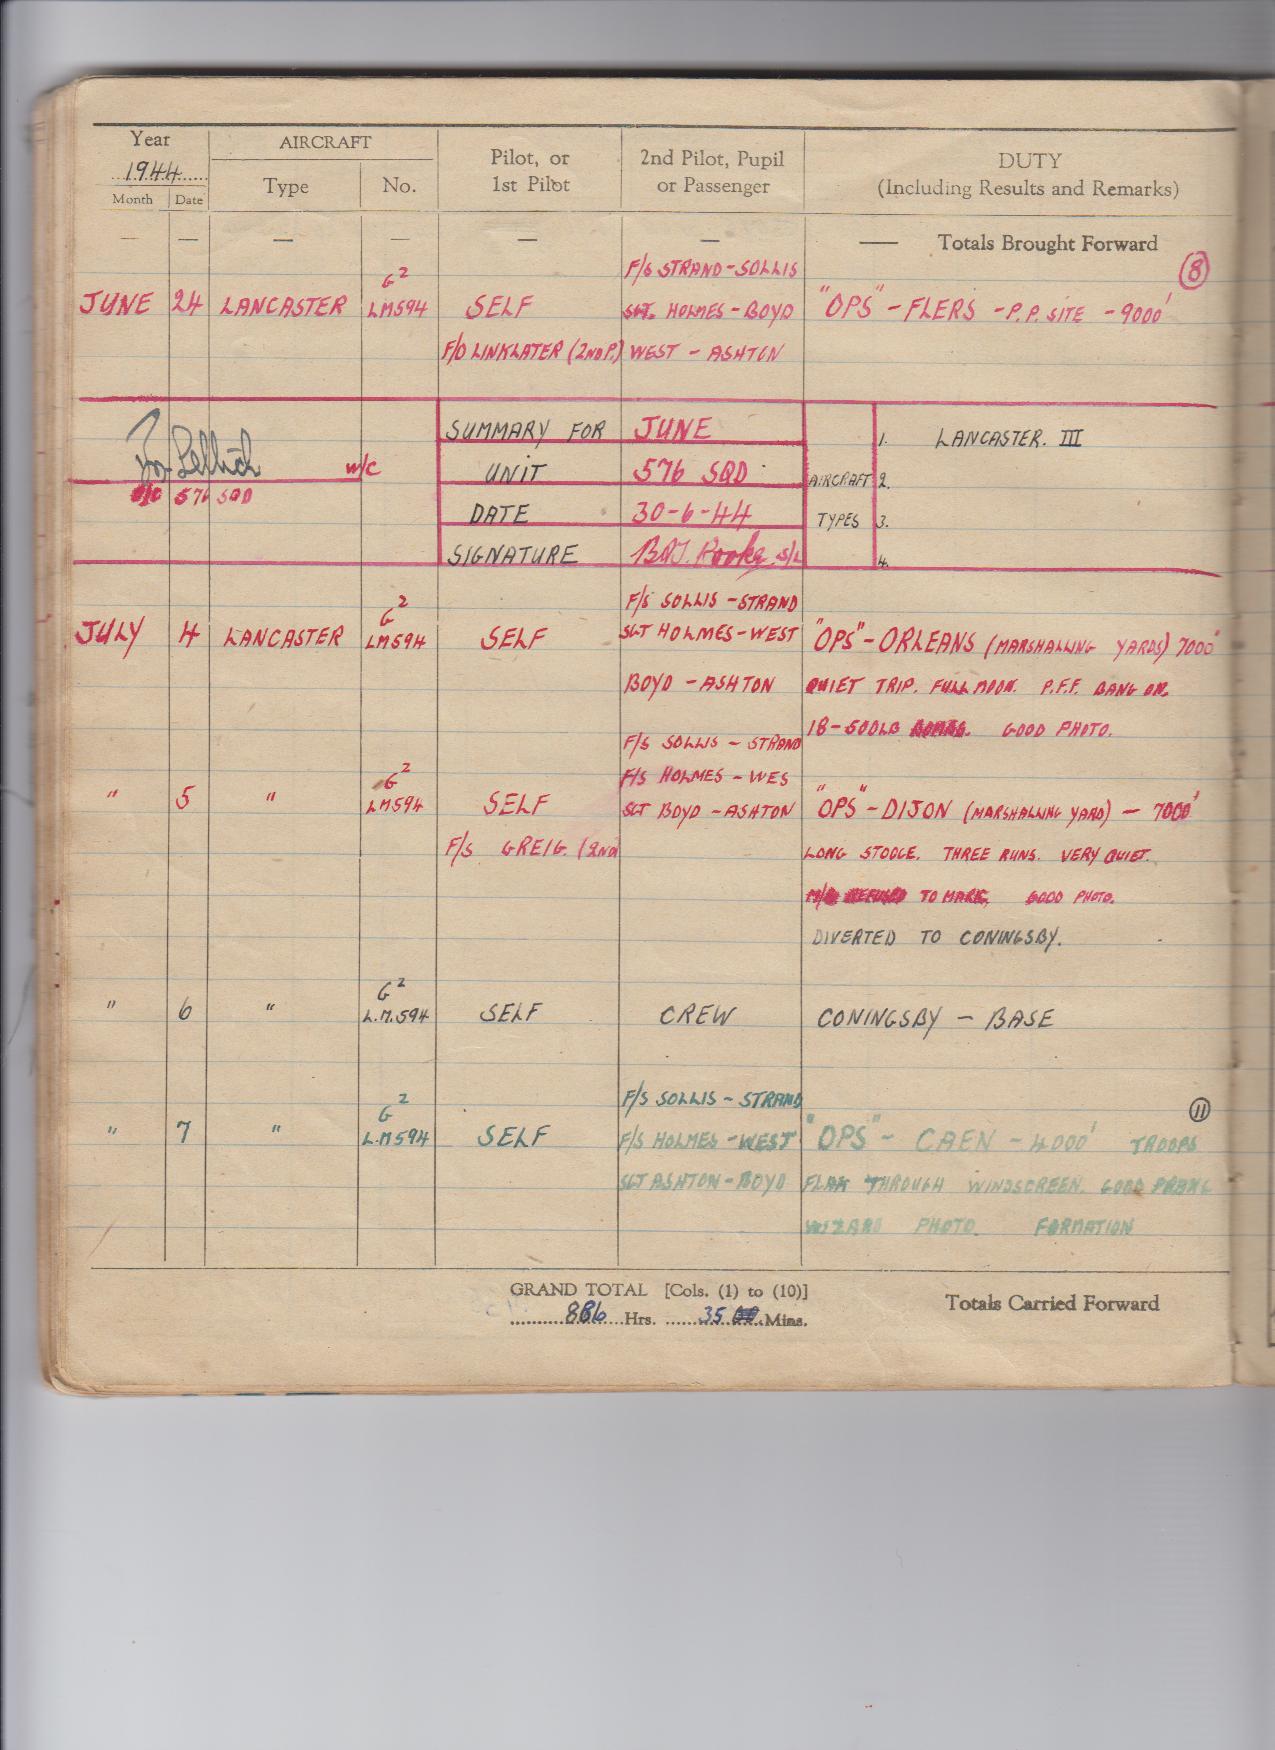 Year AIRCRAFT Pilot, or 2nd Pilot, Pupil DUTY
1944 Type No. 1st Pilot or Passenger (Including Results and Remarks)
Month Date
— — — — — — — Totals Brought Forward
G2 F/S STRAND - SOLLIS 8
JUNE 24 LANCASTER LM594 SELF SGT. HOLMES - BOYD "OPS" - FLERS - P.P. SITE - 9000'
F/O LINKLATER (2ND P.) WEST - ASHTON
SUMMARY FOR JUNE 1. LANCASTER. III
W/C UNIT 576 SQD AIRCRAFT 2.
O/C 576 SQD DATE 30-6-44 TYPES 3.
SIGNATURE S/L 4.
G2 F/S SOLLIS - STRAND
JULY 4 LANCASTER LM594 SELF SGT HOLMES - WEST "OPS" - ORLEANS (MARSHALLING YARDS) 7000'
BOYD - ASHTON QUIET TRIP. FULL MOON. P.F.F. BANG ON.
18 - 500LB BOMBS. GOOD PHOTO.
F/S SOLLIS - STRAND
G2 F/S HOLMES - WES
" 5 " LM594 SELF SGT BOYD - ASHTON "OPS" - DIJON (MARSHALLING YARD) - 7000'
F/S GREIG. (2ND LONG STOOGE. THREE RUNS. VERY QUIET.
M/B REFUSED TO MARK. GOOD PHOTO.
DIVERTED TO CONINGSBY.
G2
" 6 " L.M.594 SELF CREW CONINGSBY - BASE
G2 F/S SOLLIS - STRAND 11
" 7 " L.M594 SELF F/S HOLMES - WEST "OPS" - CAEN - 4000' TROOPS
SGT ASHTON - BOYD FLAK THROUGH WINDSCREEN. GOOD PRANG
WIZARD PHOTO. FORMATION
GRAND TOTAL [Cols. (1) to (10)] Totals Carried Forward
886 Hrs. 35 Mins.